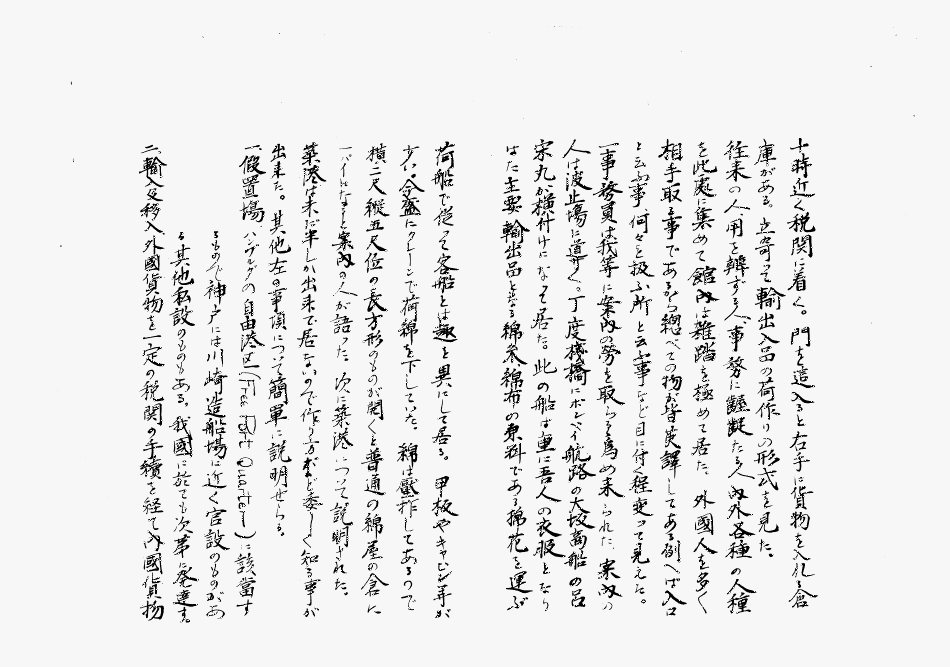 十時近く税関に着く。門を這入ると右手に貨物を入れる倉
庫がある。立寄って輸出入品の荷作りの形式を見た。
往来の人、用を辨ずる人、事務に齷齪たる人、内外各種の人種
を此處に集めて館内は雑踏を極めて居た。外國人を多く
相手取る事であるから總べての物が皆英譯してある例へば入口
と云ふ事、何々を扱ふ所と云ふ事など目に付く程変って見えた。
一事務員は我等に案内の勞を取らる爲め来られた、案内の
人は波止場に導く。丁度桟橋にボンベイ航路の大坂商船の呂
宋丸が横付けになって居た。此の船は重に吾人の衣服となり
はた主要輸出品となる綿糸、綿布の原料である棉花を運ぶ
荷船で従って客船とは趣を異にして居る。甲板やキャビン等が
少い。今盛にクレーンで荷綿を下していた。綿は壓搾してあるので
横二尺縦五尺位の長方形のものが開くと普通の綿屋の倉に
一パイになると案内の人が語った。次に築港について説明された。
築港は未だ半しか出来て居ないので作り方など委しく知る事が
出来た。其他左の事項について簡單に説明せらる。
一、假置場 ハンブルグの自由港区(Free Port Quarter)に該當す
るもので神戸には川崎造船場に近く官設のものがあ
る其他私設のものもある。我國に於ても次第に発達す。
二、輸入及移入 外國貨物を一定の税関の手續を経て内國貨物